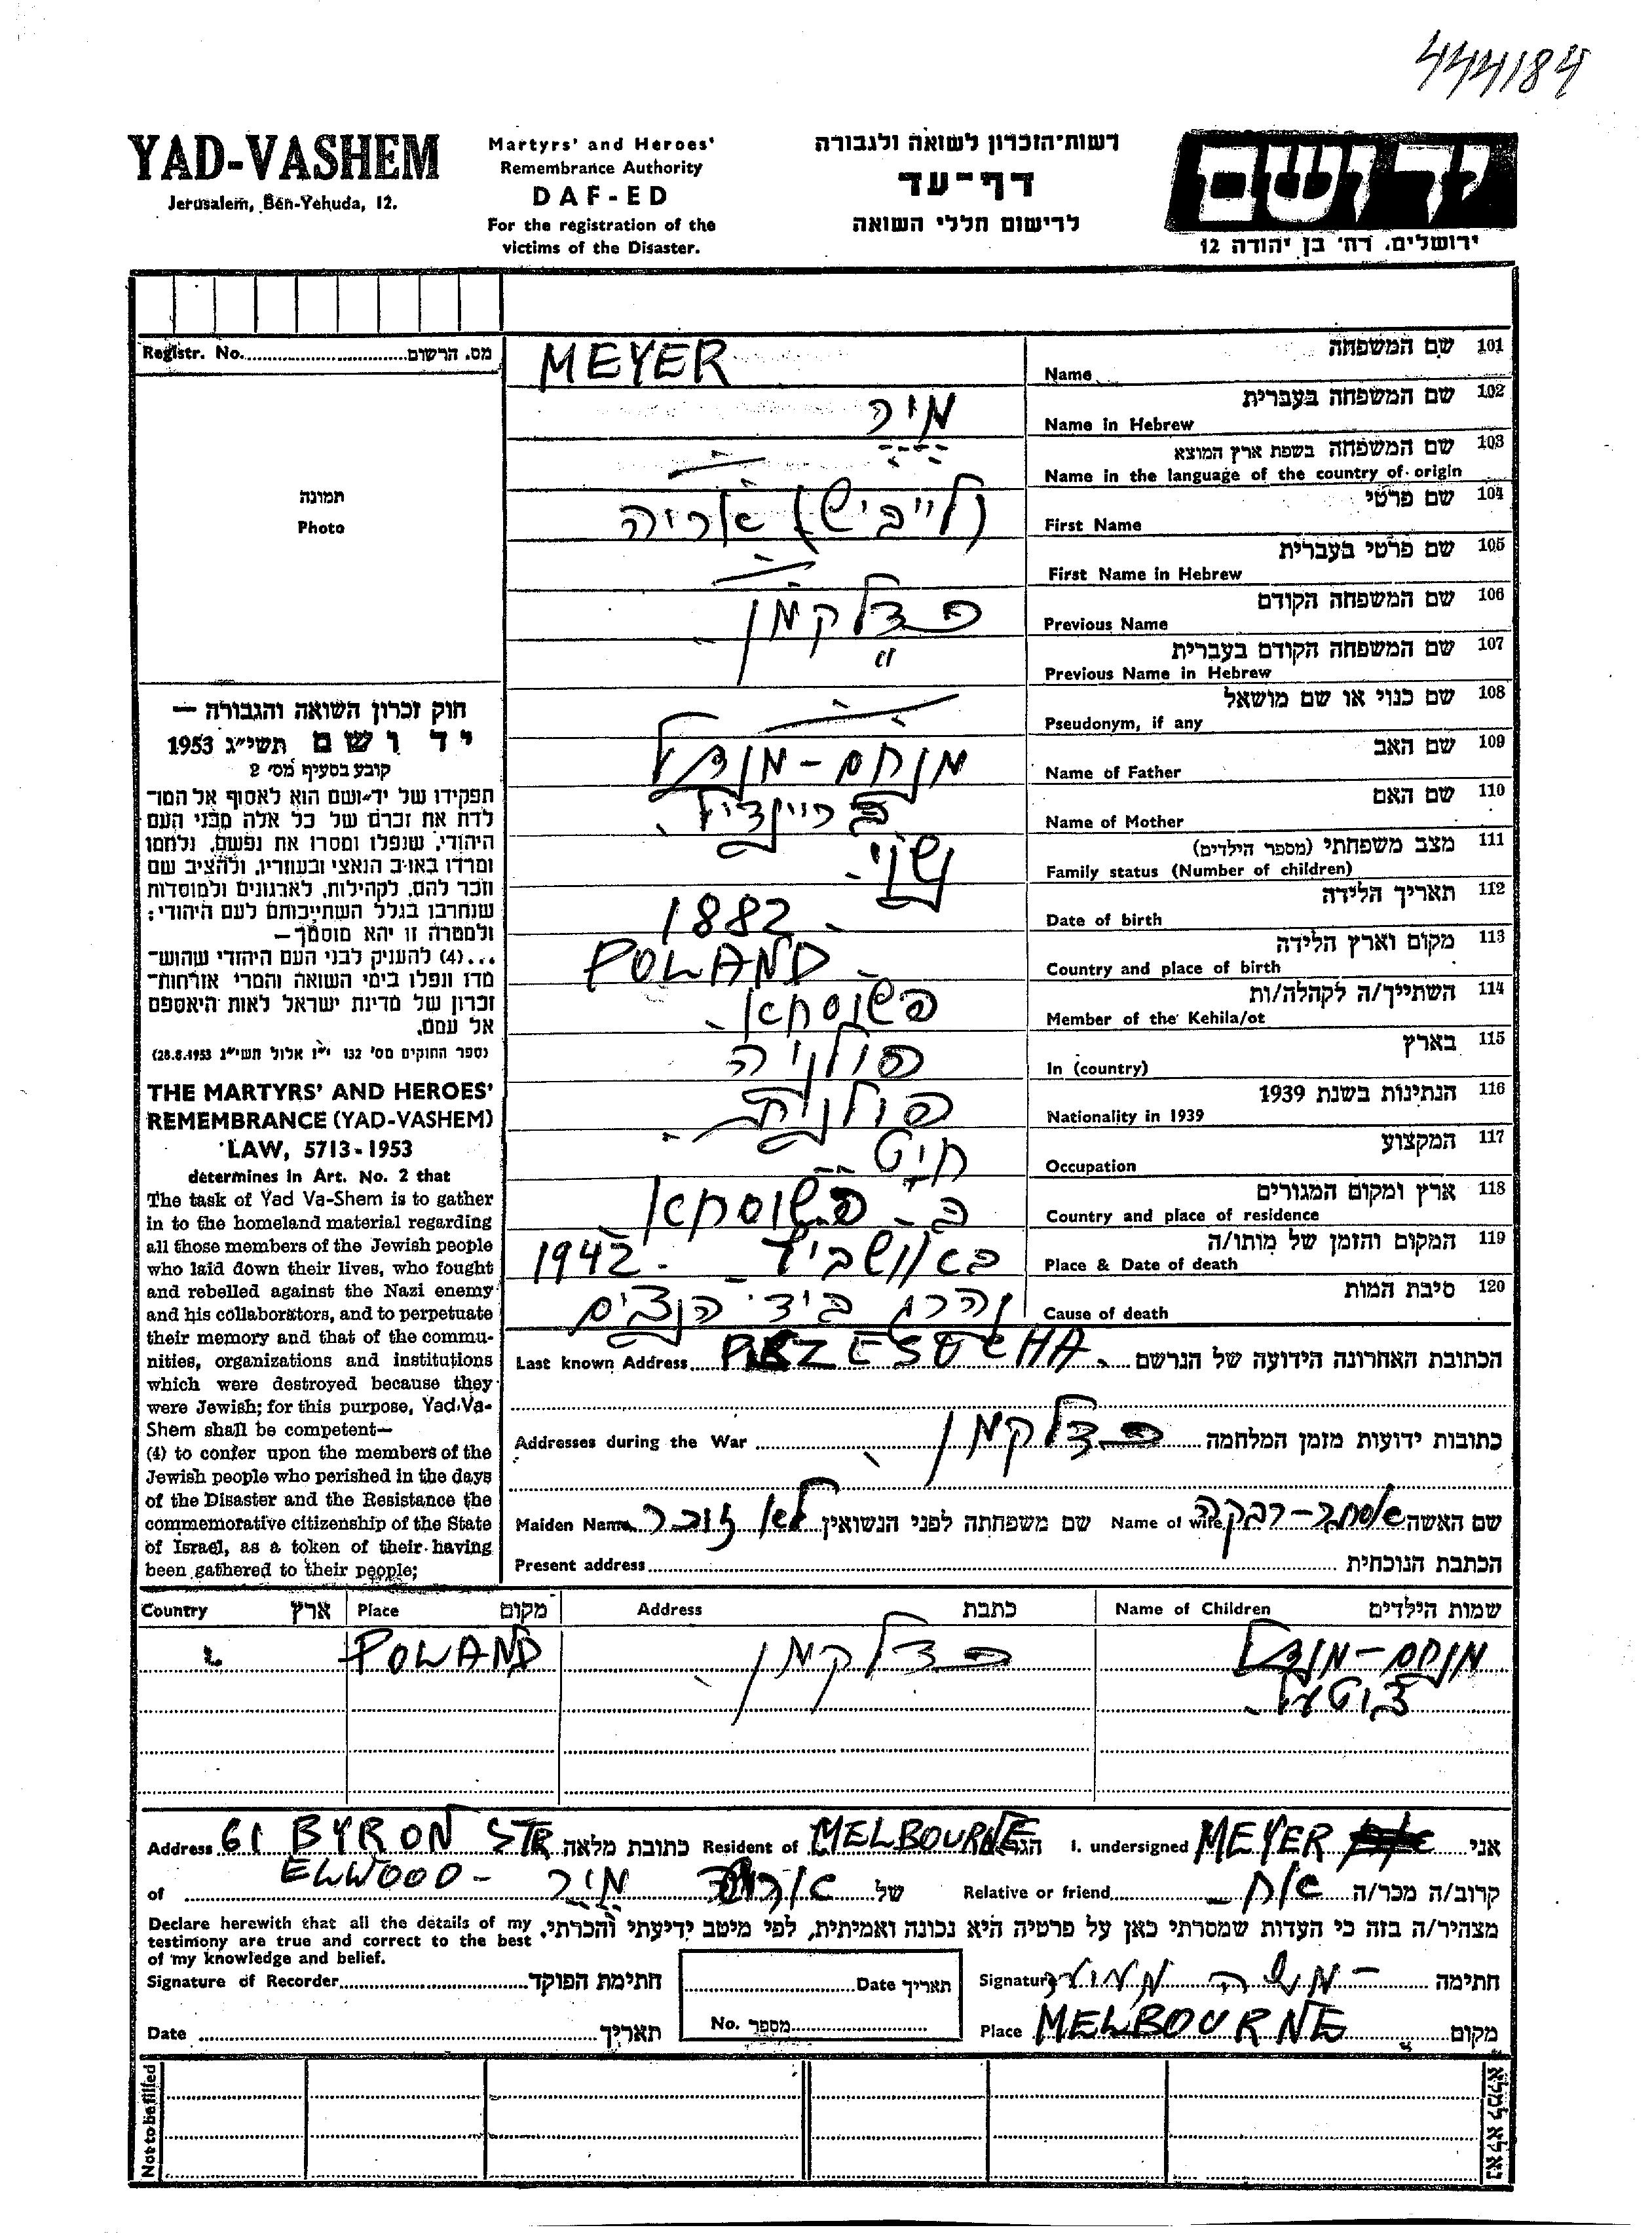 444184
YAD-VASHEM
Jerusalem, Ben-Yehuda, 12.
Martyrs' and Heroes'
Remembrance Authority
DAF-ED
For the registration of the
victims of the Disaster.
רשות-הזכרון לשואה ולגבורה
דף-עד
לרישום חללי השואה
יד ושם
ירושלים, רח' בן יהודה 12
Registr. No. מס. הרשום
תמונה
Photo
MEYER שם המשפחה 101
Name
מיר שם המשפחה בעברית 102
Name in Hebrew
שם המשפחה בשפת ארץ המוצא 103
Name in the language of the country of origin
(לייביש) אריה שם פרטי 104
First Name
שם פרטי בעברית 105
First Name in Hebrew
שם המשפחה הקודם 106
Previous Name
" שם המשפחה הקודם בעברית 107
Previous Name in Hebrew
שם כנוי או שם מושאל 108
Pseudonym, if any
מנחם-מנדל שם האב 109
Name of Father
שם האם 110
Name of Mother
נשוי. מצב משפחתי (מספר הילדים) 111
Family status (Number of children)
1882 תאריך הלידה 112
Date of birth
POLAND מקום וארץ הלידה 113
Country and place of birth
פשוסחא השתייך/ה לקהלה/ות 114
Member of the Kehila/ot
פולניה בארץ 115
In (country)
פולנית הנתינות בשנת 1939 116
Nationality in 1939
חיט המקצוע 117
Occupation
ב- פשוסחא ארץ ומקום המגורים 118
Country and place of residence
באושביץ 1942 המקום והזמן של מותו/ה 119
Place & Date of death
נהרג בידי הנצים סיבת המות 120
Cause of death
חוק זכרון השואה והגבורה —
יד ושם תשי"ג 1953
קובע בסעיף מס' 2
תפקידו של יד-ושם הוא לאסוף אל המו-
לדת את זכרם של כל אלה מבני העם
היהודי, שנפלו ומסרו את נפשם, נלחמו
ומרדו באויב הנאצי ובעוזריו, ולהציב שם
וזכר להם, לקהילות, לארגונים ולמוסדות
שנחרבו בגלל השתייכותם לעם היהודי;
ולמטרה זו יהא מוסמך —
...(4) להעניק לבני העם היהודי שהוש-
מדו ונפלו בימי השואה והמרי אזרחות-
זכרון של מדינת ישראל לאות היאספם
אל עמם.
(ספר החוקים מס' 132 י"ז אלול תשי"ג 28.8.1953)
THE MARTYRS' AND HEROES'
REMEMBRANCE (YAD-VASHEM)
LAW, 5713-1953
determines in Art. No. 2 that
The task of Yad Va-Shem is to gather
in to the homeland material regarding
all those members of the Jewish people
who laid down their lives, who fought
and rebelled against the Nazi enemy
and his collaborators, and to perpetuate
their memory and that of the commu-
nities, organizations and institutions
which were destroyed because they
were Jewish; for this purpose, Yad Va-
Shem shall be competent—
(4) to confer upon the members of the
Jewish people who perished in the days
of the Disaster and the Resistance the
commemorative citizenship of the State
of Israel, as a token of their having
been gathered to their people;
Last known Address הכתובת האחרונה הידועה של הנרשם
Addresses during the War כתובות ידועות מזמן המלחמה
שם האשה אסתר-רבקה Name of wife שם משפחתה לפני הנשואין לא זוכר Maiden Name
Present address הכתבת הנוכחית
Country ארץ Place מקום Address כתבת Name of Children שמות הילדים
POLAND מנחם-מנדל
אני MEYER I. undersigned הגר MELBOURNE Resident of כתובת מלאה 61 BYRON STR Address
ELWOOD -
קרוב/ה מכר/ה אח Relative or friend של מיר of
מצהיר/ה בזה כי העדות שמסרתי כאן על פרטיה היא נכונה ואמיתית, לפי מיטב ידיעתי והכרתי.
Declare herewith that all the details of my
testimony are true and correct to the best
of my knowledge and belief.
Signature of Recorder חתימת הפוקד
Date תאריך
Date תאריך
No. מספר
Signature משה חתימה
Place MELBOURNE מקום
Not to be filled
נא לא למלא